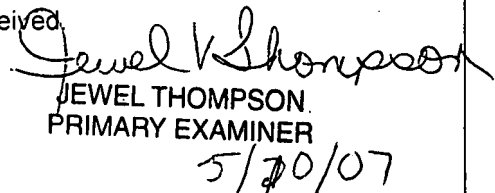 eived
Jewel V Thompson
JEWEL THOMPSON
PRIMARY EXAMINER
5/20/07